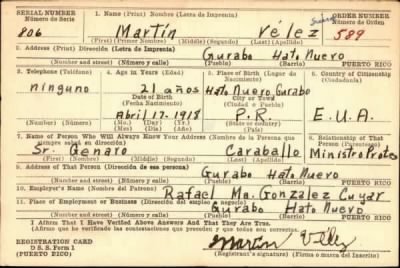 SERIAL NUMBER
Número de Serie
1. Name (Print) Nombre (Letra de Imprenta)
ORDER NUMBER
Número de Orden
806
Martín Vélez
589
(First) (Primer Nombre) (Middle) (Segundo) (Last) (Apellido)
2. Address (Print) Dirección (Letra de Imprenta)
Gurabo Hato Nuevo
(Number and street) (Número y calle) (Town) (Pueblo) PUERTO RICO
3. Telephone (Teléfono)
4. Age in Years (Edad)
5. Place of Birth (Lugar de Nacimiento)
6. Country of Citizenship (Ciudadanía)
ninguno
21 años
Hato Nuevo Gurabo
Date of Birth
(Fecha Nacimiento)
City or Town
(Ciudad o Pueblo)
Abril, 17, 1918
P.R.
E.U.A.
(Number) (Número)
(Mo.) (Day) (Yr.)
(Mes) (Día) (Año)
(State or country)
(País)
7. Name of Person Who Will Always Know Your Address (Nombre de la Persona que siempre sabrá su dirección)
8. Relationship of That Person (Parentesco)
Sr. Genaro Caraballo
Ministro Protes
(First) (Primer nombre) (Middle) (Segundo) (Last) (Apellido)
9. Address of That Person (Dirección de esa persona)
Gurabo Hato Nuevo
(Number and street) (Número y calle) (Town) (Pueblo) PUERTO RICO
10. Employer's Name (Nombre del Patrono)
Rafael Ma. Gonzalez Cuyar
11. Place of Employment or Business (Dirección del empleo o negocio)
Gurabo Hato Nuevo
(Number and street) (Número y calle) (Town) (Pueblo) PUERTO RICO
I Affirm That I Have Verified Above Answers and That They Are True.
Afirmo que he verificado las contestaciones que preceden y que son ciertas.
REGISTRATION CARD
D. S. S. Form 1
(PUERTO RICO)
Martin Vélez
(Registrant's signature) (Firma del registrado)